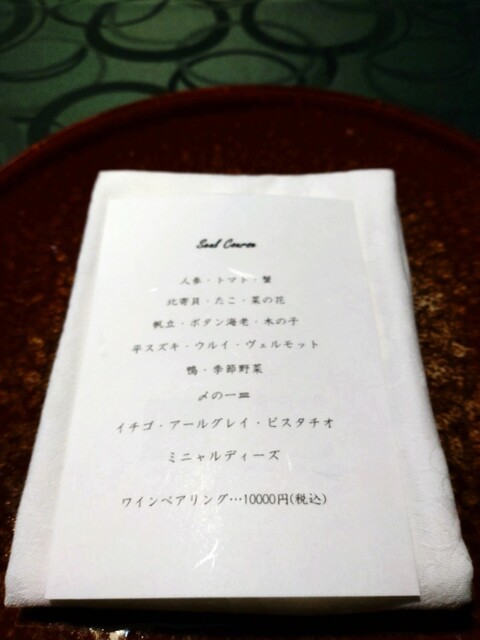 Soul Course
人参・トマト・蟹
北寄貝・たこ・菜の花
帆立・ボタン海老・木の子
平スズキ・ウルイ・ヴェルモット
鴨・季節野菜
〆の一皿
イチゴ・アールグレイ・ピスタチオ
ミニャルディーズ
ワインペアリング…10000円(税込)